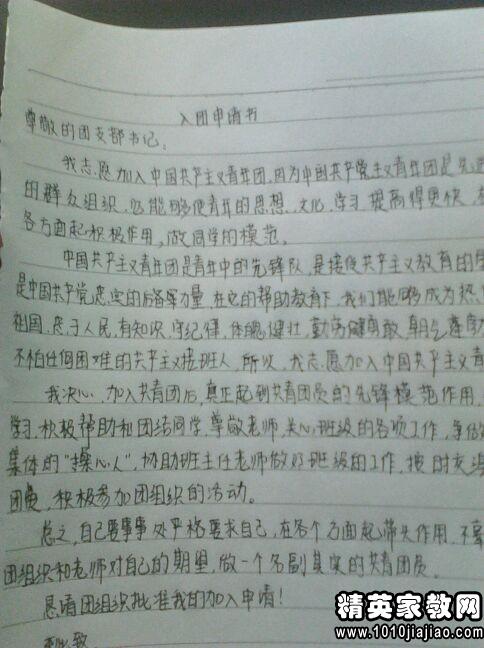 入团申请书
尊敬的团支部书记:
我志愿加入中国共产主义青年团,因为中国共产党主义青年团是先进
的群众组织,它能够使青年的思想、文化、学习提高得更快,在
各方面起积极作用,做同学的模范。
中国共产主义青年团是青年中的先锋队,是接使共产主义教育的学
是中国共产党忠实的后备军力量,在它的帮助教育下,我们能够成为热
祖国,忠于人民,有知识,守纪律,体魄健壮,勤劳勇敢,朝气蓬勃
不怕任何困难的共产主义接班人,所以,我志愿加入中国共产主义青
我决心,加入共青团后,真正起到共青团员的先锋模范作用,
学习,积极帮助和团结同学,尊敬老师,关心班级的各项工作,争做
集体的"操心人",协助班主任老师做好班级的工作,按时交
团费,积极参加团组织的活动。
总之,自己要事事处严格要求自己,在各个方面起带头作用,不辜
团组织和老师对自己的期望,做一个名副其实的共青团员。
恳请团组织批准我的加入申请!
致
精英家教网
www.1010jiajiao.com